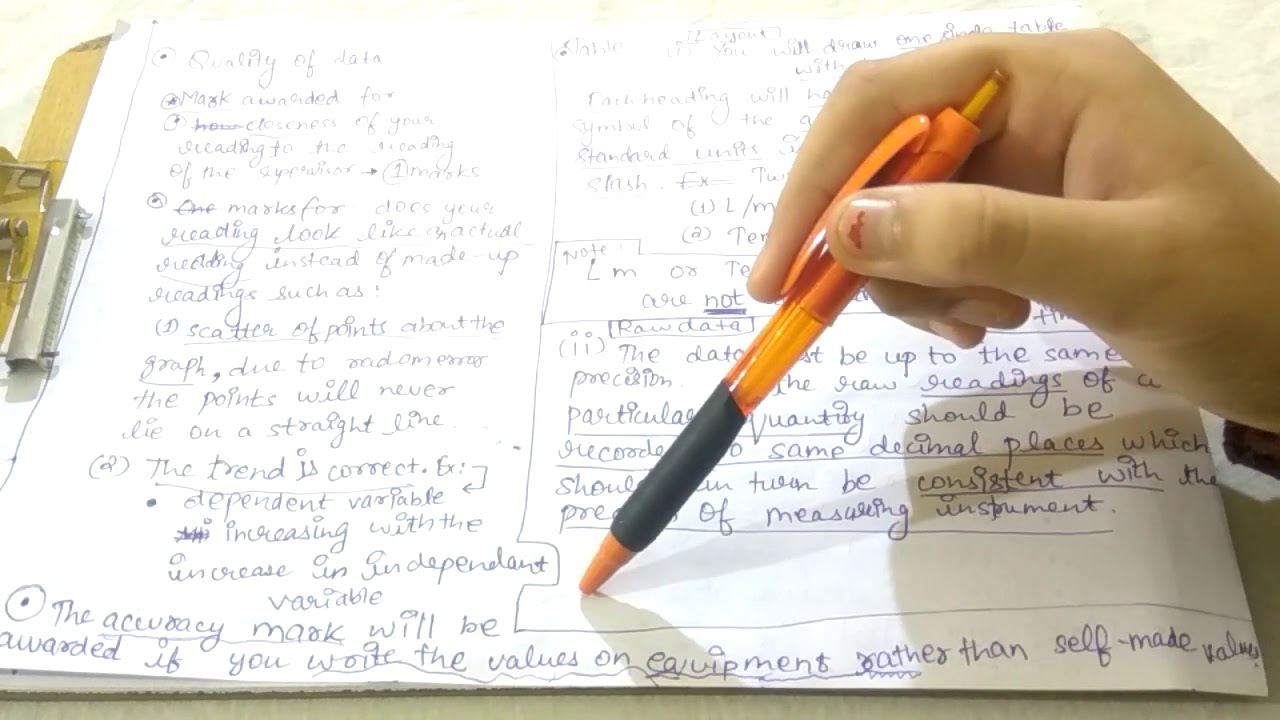 • Quality of data
Mark awarded for
how closeness of your
reading to the reading
of the supervisor → 1 marks
One marks for does your
reading look like an actual
reading instead of made-up
readings such as:
(1) scatter of points about the
graph, due to radom error
the points will never
lie on a straight line.
(2) The trend is correct. Ex:
• dependent variable
increasing with the
increase in independant
variable
The accuracy mark will be
awarded if you write the values on equipment rather than self-made values
• Table [Layout]
(i) You will draw one single table
with
Each heading will
symbol of the
standard units
slash. Ex=
(1) L/m
(2)
Note:
L m or
are not
[Raw data]
(ii) The data be up to the same
precision. the raw readings of a
particular quantity should be
same decimal places which
should turn be consistent with the
of measuring instrument.